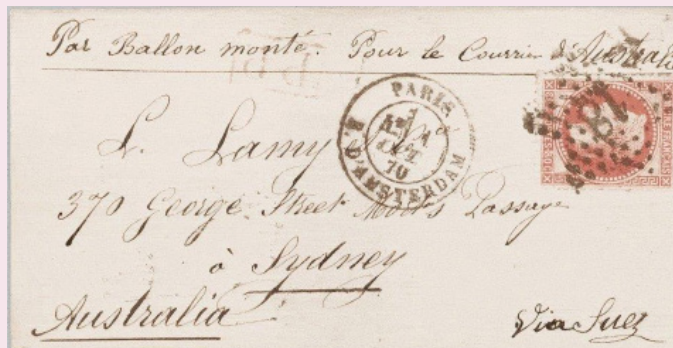 Par Ballon monté. Pour le Courrier d'Australie
PARIS
1
OCT.
70
R. D'AMSTERDAM
18
L. Lamy
370 George Street Morts Passage
à Sydney
Australia
Via Suez